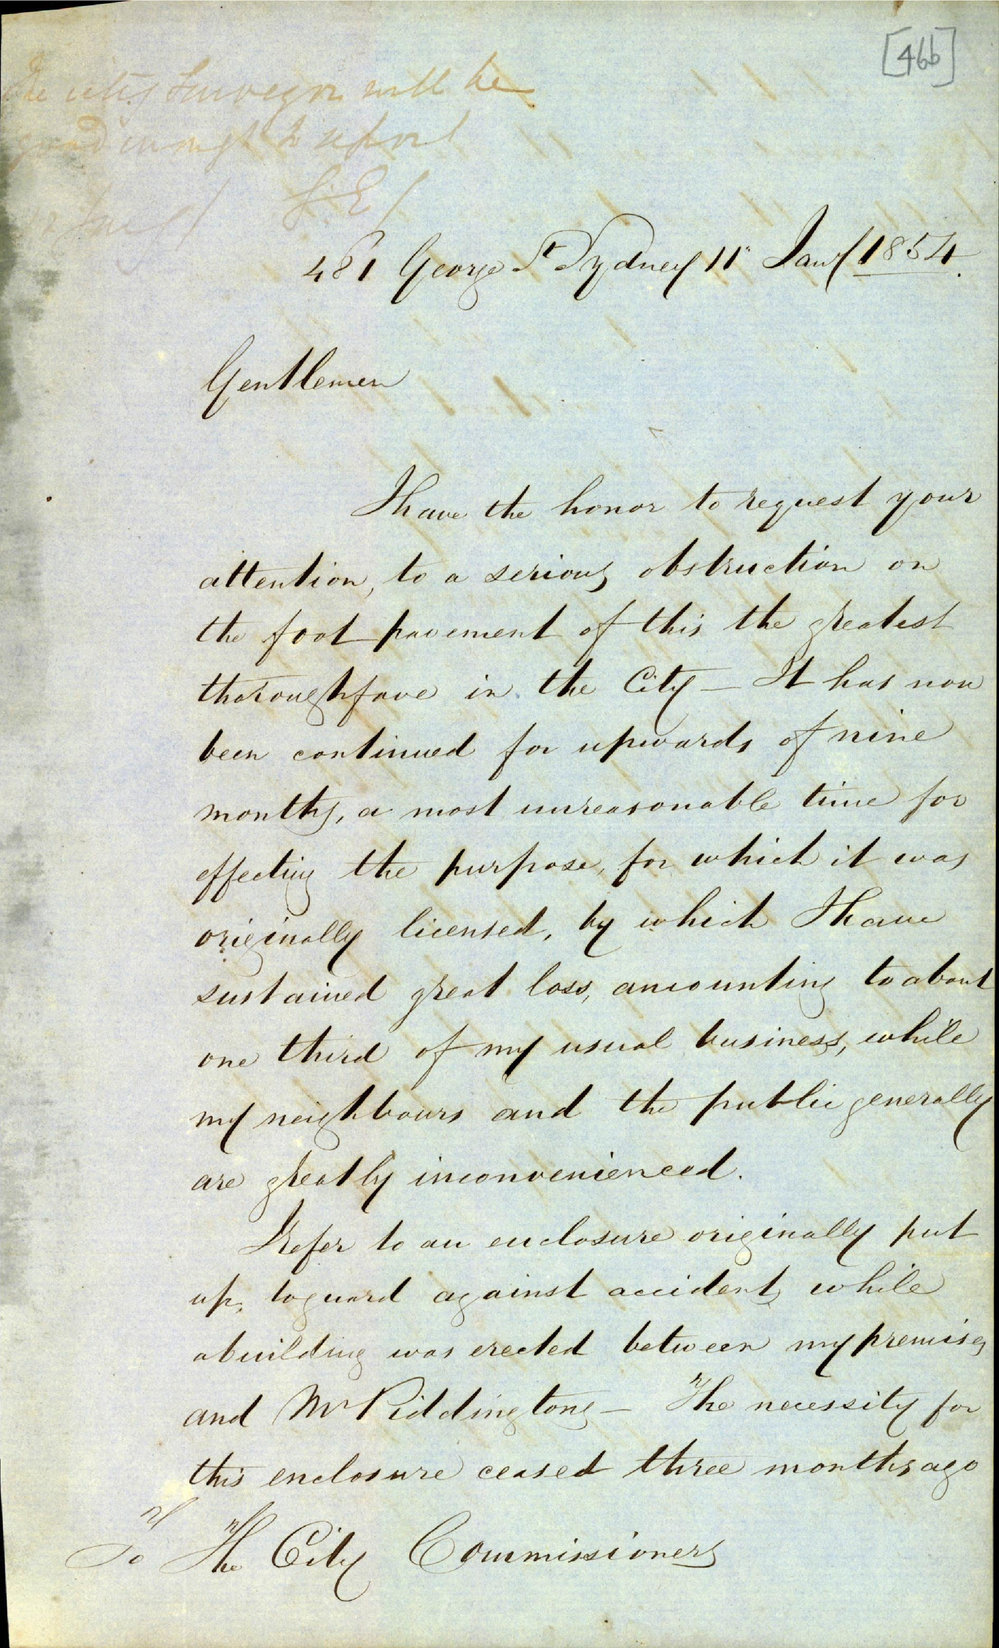 [466]
The City Surveyor will be
good enough to report
481 George St Sydney 11 Jany 1854.
Gentlemen
I have the honor to request your
attention, to a serious obstruction on
the foot pavement of this the greatest
thoroughfare in the City — It has now
been continued for upwards of nine
months, a most unreasonable time for
effecting the purpose, for which it was
originally licensed, by which I have
sustained great loss, amounting to about
one third of my usual business, while
my neighbours and the public generally
are greatly inconvenienced.
I refer to an enclosure originally put
up, to guard against accident, while
a building was erected between my premises
and Mr Piddingtons — The necessity for
this enclosure ceased three months ago
To The City Commissioners